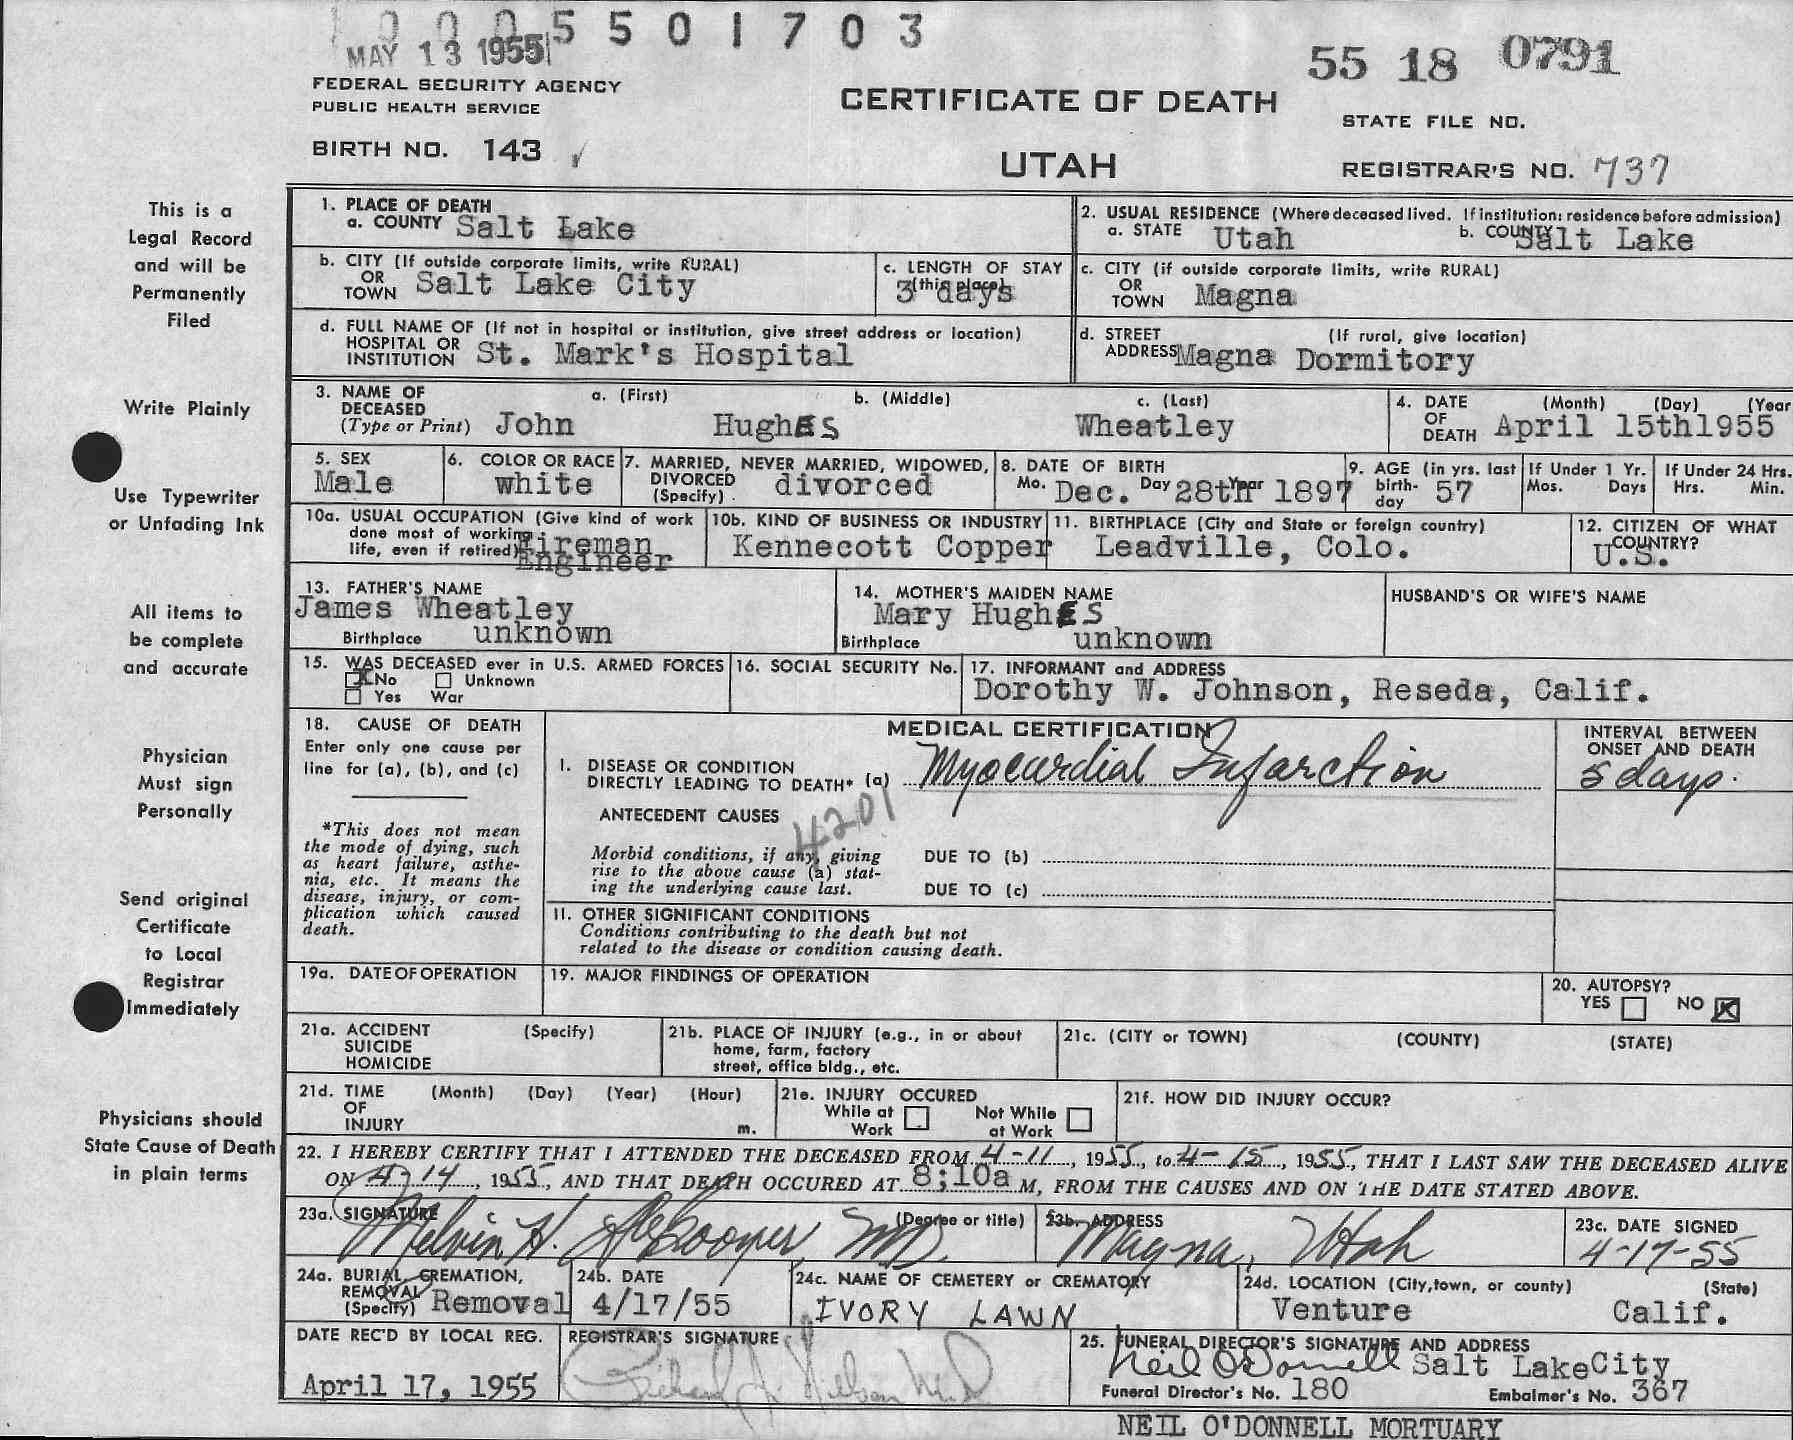 1 0 0 0 5 5 0 1 7 0 3
MAY 13 1955
55 18 0791
FEDERAL SECURITY AGENCY
PUBLIC HEALTH SERVICE
CERTIFICATE OF DEATH
STATE FILE NO.
BIRTH NO. 143 ✓
UTAH
REGISTRAR'S NO. 737
This is a
Legal Record
and will be
Permanently
Filed
Write Plainly
Use Typewriter
or Unfading Ink
All items to
be complete
and accurate
Physician
Must sign
Personally
Send original
Certificate
to Local
Registrar
Immediately
Physicians should
State Cause of Death
in plain terms
1. PLACE OF DEATH
a. COUNTY Salt Lake
2. USUAL RESIDENCE (Where deceased lived. If institution: residence before admission)
a. STATE Utah b. COUNTY Salt Lake
b. CITY (If outside corporate limits, write RURAL)
OR
TOWN Salt Lake City
c. LENGTH OF STAY
(this place)
3 days
c. CITY (if outside corporate limits, write RURAL)
OR
TOWN Magna
d. FULL NAME OF (If not in hospital or institution, give street address or location)
HOSPITAL OR
INSTITUTION St. Mark's Hospital
d. STREET (If rural, give location)
ADDRESS Magna Dormitory
3. NAME OF DECEASED (Type or Print)
a. (First) b. (Middle) c. (Last)
John HughES Wheatley
4. DATE OF DEATH (Month) (Day) (Year
April 15th1955
5. SEX
Male
6. COLOR OR RACE
white
7. MARRIED, NEVER MARRIED, WIDOWED,
DIVORCED
(Specify) divorced
8. DATE OF BIRTH
Mo. Dec. Day 28th Year 1897
9. AGE (in yrs. last
birth-
day 57
If Under 1 Yr.
Mos. Days
If Under 24 Hrs.
Hrs. Min.
10a. USUAL OCCUPATION (Give kind of work
done most of working
life, even if retired) Fireman
Engineer
10b. KIND OF BUSINESS OR INDUSTRY
Kennecott Copper
11. BIRTHPLACE (City and State or foreign country)
Leadville, Colo.
12. CITIZEN OF WHAT
COUNTRY?
U.S.
13. FATHER'S NAME
James Wheatley
Birthplace unknown
14. MOTHER'S MAIDEN NAME
Mary HughES
Birthplace unknown
HUSBAND'S OR WIFE'S NAME
15. WAS DECEASED ever in U.S. ARMED FORCES
X No Unknown
Yes War
16. SOCIAL SECURITY No.
17. INFORMANT and ADDRESS
Dorothy W. Johnson, Reseda, Calif.
18. CAUSE OF DEATH
Enter only one cause per
line for (a), (b), and (c)
*This does not mean
the mode of dying, such
as heart failure, asthe-
nia, etc. It means the
disease, injury, or com-
plication which caused
death.
MEDICAL CERTIFICATION
I. DISEASE OR CONDITION
DIRECTLY LEADING TO DEATH* (a) Myocardial Infarction
INTERVAL BETWEEN
ONSET AND DEATH
5 days.
ANTECEDENT CAUSES
4201
Morbid conditions, if any, giving
rise to the above cause (a) stat-
ing the underlying cause last.
DUE TO (b)
DUE TO (c)
II. OTHER SIGNIFICANT CONDITIONS
Conditions contributing to the death but not
related to the disease or condition causing death.
19a. DATE OF OPERATION
19. MAJOR FINDINGS OF OPERATION
20. AUTOPSY?
YES NO X
21a. ACCIDENT (Specify)
SUICIDE
HOMICIDE
21b. PLACE OF INJURY (e.g., in or about
home, farm, factory
street, office bldg., etc.
21c. (CITY or TOWN) (COUNTY) (STATE)
21d. TIME (Month) (Day) (Year) (Hour)
OF
INJURY m.
21e. INJURY OCCURED
While at Work Not While at Work
21f. HOW DID INJURY OCCUR?
22. I HEREBY CERTIFY THAT I ATTENDED THE DECEASED FROM 4-11, 1955, to 4-15, 1955, THAT I LAST SAW THE DECEASED ALIVE
ON 4-14, 1955, AND THAT DEATH OCCURED AT 8;10a M, FROM THE CAUSES AND ON THE DATE STATED ABOVE.
23a. SIGNATURE (Degree or title)
Melvin H. MD
23b. ADDRESS
Magna, Utah
23c. DATE SIGNED
4-17-55
24a. BURIAL, CREMATION,
REMOVAL
(Specify) Removal
24b. DATE
4/17/55
24c. NAME OF CEMETERY or CREMATORY
IVORY LAWN
24d. LOCATION (City, town, or county) (State)
Venture Calif.
DATE REC'D BY LOCAL REG.
April 17, 1955
REGISTRAR'S SIGNATURE
25. FUNERAL DIRECTOR'S SIGNATURE AND ADDRESS
Neil O'Donnell Salt Lake City
Funeral Director's No. 180 Embalmer's No. 367
NEIL O'DONNELL MORTUARY